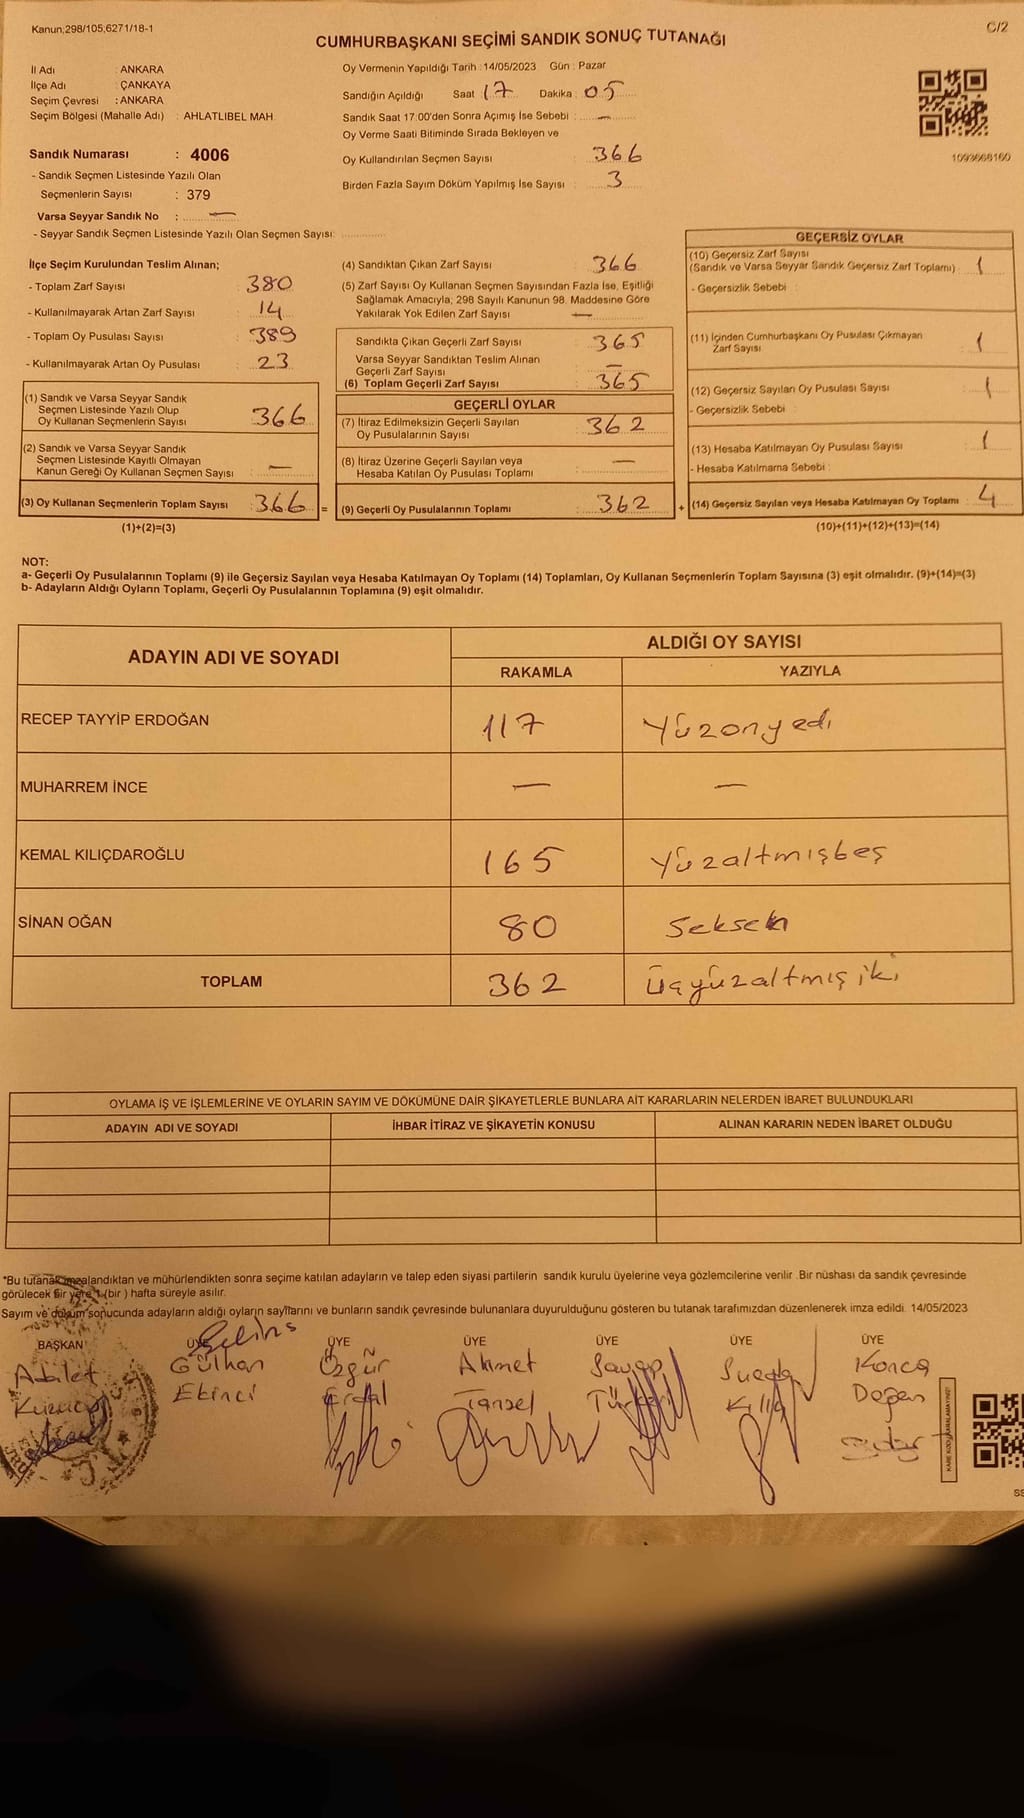 Kanun,298/105,6271/18-1
C/2
CUMHURBAŞKANI SEÇİMİ SANDIK SONUÇ TUTANAĞI
İl Adı : ANKARA
İlçe Adı : ÇANKAYA
Seçim Çevresi : ANKARA
Seçim Bölgesi (Mahalle Adı) : AHLATLIBEL MAH.
Sandık Numarası : 4006
- Sandık Seçmen Listesinde Yazılı Olan
Seçmenlerin Sayısı : 379
Varsa Seyyar Sandık No : —
- Seyyar Sandık Seçmen Listesinde Yazılı Olan Seçmen Sayısı: ..............
Oy Vermenin Yapıldığı Tarih :14/05/2023 Gün : Pazar
Sandığın Açıldığı Saat 17 Dakika : 05
Sandık Saat 17:00'den Sonra Açımış İse Sebebi : —
Oy Verme Saati Bitiminde Sırada Bekleyen ve
Oy Kullandırılan Seçmen Sayısı : 366
Birden Fazla Sayım Döküm Yapılmış İse Sayısı : 3
1093668160
İlçe Seçim Kurulundan Teslim Alınan;
- Toplam Zarf Sayısı : 380
- Kullanılmayarak Artan Zarf Sayısı : 14
- Toplam Oy Pusulası Sayısı : 389
- Kullanılmayarak Artan Oy Pusulası : 23
(1) Sandık ve Varsa Seyyar Sandık
Seçmen Listesinde Yazılı Olup
Oy Kullanan Seçmenlerin Sayısı : 366
(2) Sandık ve Varsa Seyyar Sandık
Seçmen Listesinde Kayıtlı Olmayan
Kanun Gereği Oy Kullanan Seçmen Sayısı : —
(3) Oy Kullanan Seçmenlerin Toplam Sayısı : 366 =
(1)+(2)=(3)
(4) Sandıktan Çıkan Zarf Sayısı : 366
(5) Zarf Sayısı Oy Kullanan Seçmen Sayısından Fazla İse, Eşitliği
Sağlamak Amacıyla; 298 Sayılı Kanunun 98. Maddesine Göre
Yakılarak Yok Edilen Zarf Sayısı : —
Sandıkta Çıkan Geçerli Zarf Sayısı : 365
Varsa Seyyar Sandıktan Teslim Alınan
Geçerli Zarf Sayısı : —
(6) Toplam Geçerli Zarf Sayısı : 365
GEÇERLİ OYLAR
(7) İtiraz Edilmeksizin Geçerli Sayılan
Oy Pusulalarının Sayısı : 362
(8) İtiraz Üzerine Geçerli Sayılan veya
Hesaba Katılan Oy Pusulası Toplamı : —
(9) Geçerli Oy Pusulalarının Toplamı : 362 +
GEÇERSİZ OYLAR
(10) Geçersiz Zarf Sayısı
(Sandık ve Varsa Seyyar Sandık Geçersiz Zarf Toplamı) : 1
- Geçersizlik Sebebi :
(11) İçinden Cumhurbaşkanı Oy Pusulası Çıkmayan
Zarf Sayısı : 1
(12) Geçersiz Sayılan Oy Pusulası Sayısı : 1
- Geçersizlik Sebebi :
(13) Hesaba Katılmayan Oy Pusulası Sayısı : 1
- Hesaba Katılmama Sebebi :
(14) Geçersiz Sayılan veya Hesaba Katılmayan Oy Toplamı : 4
(10)+(11)+(12)+(13)=(14)
NOT:
a- Geçerli Oy Pusulalarının Toplamı (9) ile Geçersiz Sayılan veya Hesaba Katılmayan Oy Toplamı (14) Toplamları, Oy Kullanan Seçmenlerin Toplam Sayısına (3) eşit olmalıdır. (9)+(14)=(3)
b- Adayların Aldığı Oyların Toplamı, Geçerli Oy Pusulalarının Toplamına (9) eşit olmalıdır.
ADAYIN ADI VE SOYADI ALDIĞI OY SAYISI
RAKAMLA YAZIYLA
RECEP TAYYİP ERDOĞAN 117 Yüzonyedi
MUHARREM İNCE — —
KEMAL KILIÇDAROĞLU 165 Yüzaltmışbeş
SİNAN OĞAN 80 Seksen
TOPLAM 362 Üçyüzaltmışiki
OYLAMA İŞ VE İŞLEMLERİNE VE OYLARIN SAYIM VE DÖKÜMÜNE DAİR ŞİKAYETLERLE BUNLARA AİT KARARLARIN NELERDEN İBARET BULUNDUKLARI
ADAYIN ADI VE SOYADI İHBAR İTİRAZ VE ŞİKAYETİN KONUSU ALINAN KARARIN NEDEN İBARET OLDUĞU
*Bu tutanak imzalandıktan ve mühürlendikten sonra seçime katılan adayların ve talep eden siyasi partilerin sandık kurulu üyelerine veya gözlemcilerine verilir .Bir nüshası da sandık çevresinde
görülecek bir yere 1 (bir ) hafta süreyle asılır.
Sayım ve döküm sonucunda adayların aldığı oyların sayılarını ve bunların sandık çevresinde bulunanlara duyurulduğunu gösteren bu tutanak tarafımızdan düzenlenerek imza edildi. 14/05/2023
BAŞKAN ÜYE ÜYE ÜYE ÜYE ÜYE ÜYE
Adalet Gülhan Özgür Ahmet Savaş Sueda Konca
Ekinci Erdal Tansel Kılıç Doğan
KARE KODU KARALAMAYINIZ!